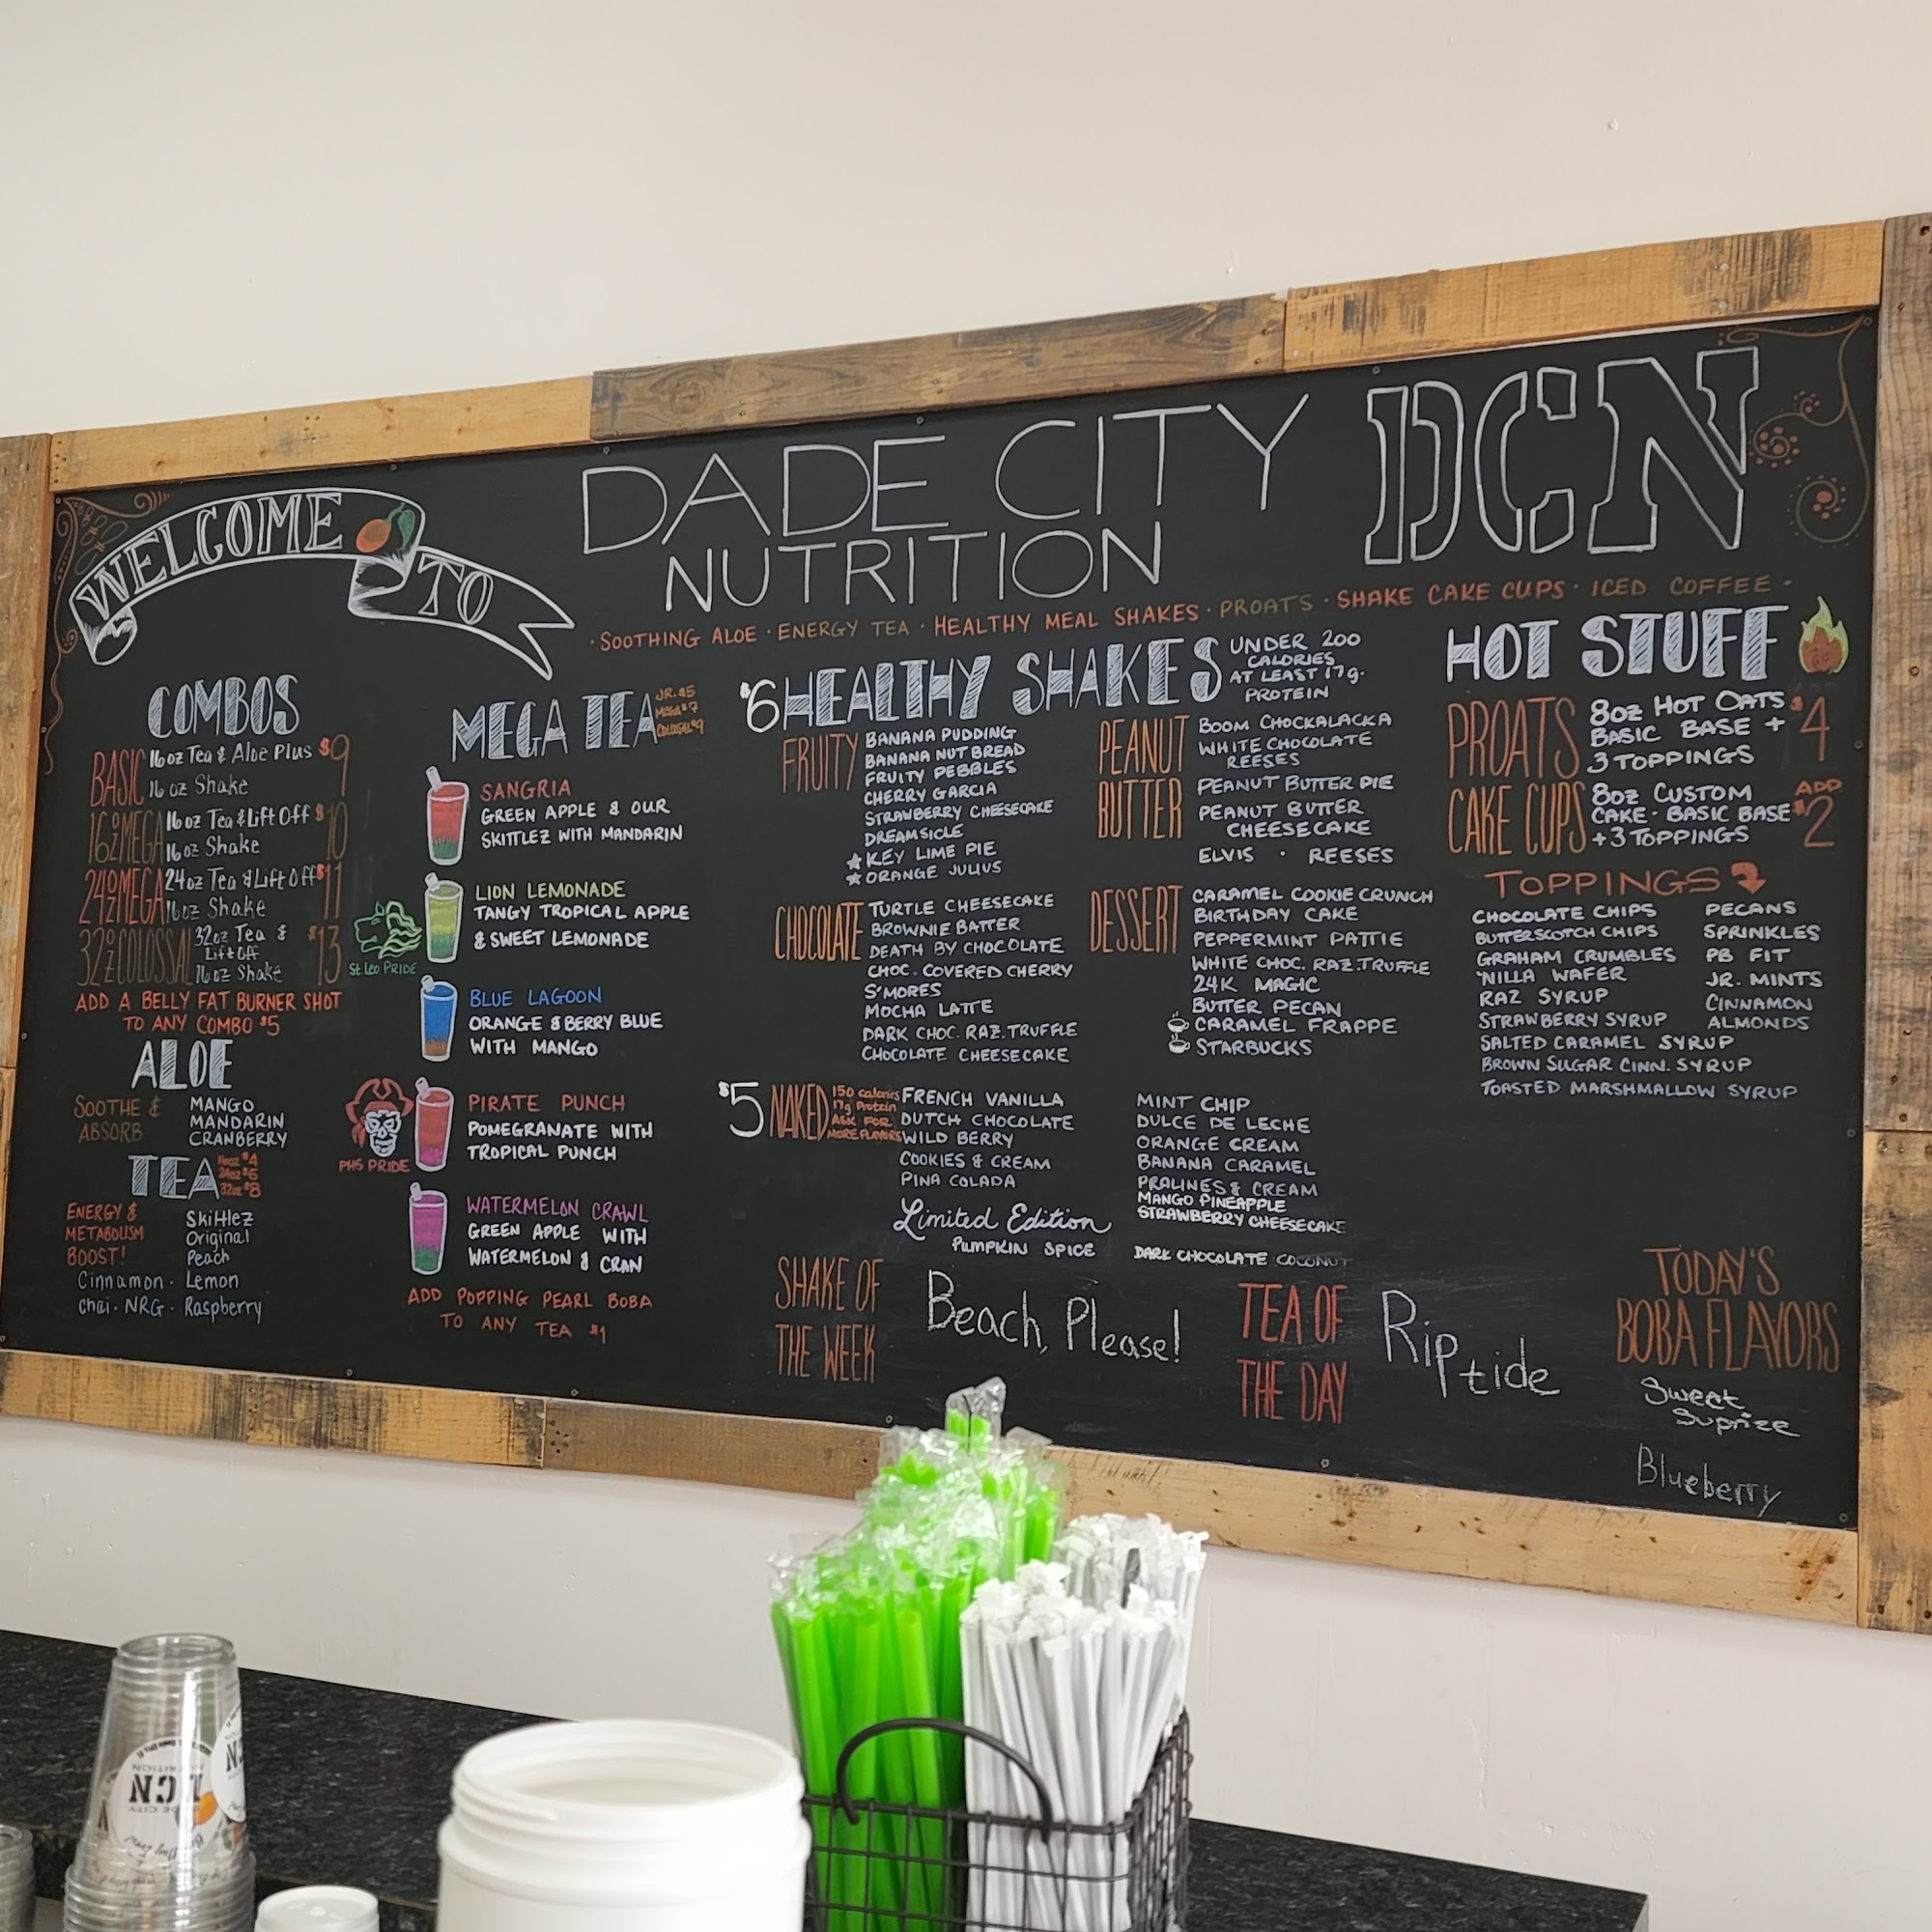 WELCOME TO
DADE CITY
NUTRITION
DCN
· SOOTHING ALOE · ENERGY TEA · HEALTHY MEAL SHAKES · PROATS · SHAKE CAKE CUPS · ICED COFFEE ·
COMBOS
BASIC 16oz Tea & Aloe Plus $9
16 oz Shake
16oz MEGA 16oz Tea & Lift Off $10
16oz Shake
24oz MEGA 24oz Tea & Lift Off $11
16oz Shake
32oz COLOSSAL 32oz Tea & $13
Lift Off
16oz Shake
ADD A BELLY FAT BURNER SHOT
TO ANY COMBO $5
ALOE
SOOTHE &
ABSORB
MANGO
MANDARIN
CRANBERRY
TEA
16oz $4
24oz $6
32oz $8
ENERGY &
METABOLISM
BOOST!
Skittlez
Original
Peach
Cinnamon · Lemon
Chai · NRG · Raspberry
MEGA TEA
JR. $5
MEGA $7
COLOSSAL $9
SANGRIA
GREEN APPLE & OUR
SKITTLEZ WITH MANDARIN
LION LEMONADE
TANGY TROPICAL APPLE
& SWEET LEMONADE
St. Leo PRIDE
BLUE LAGOON
ORANGE & BERRY BLUE
WITH MANGO
PIRATE PUNCH
POMEGRANATE WITH
TROPICAL PUNCH
PHS PRIDE
WATERMELON CRAWL
GREEN APPLE WITH
WATERMELON & CRAN
ADD POPPING PEARL BOBA
TO ANY TEA $1
$6 HEALTHY SHAKES
UNDER 200
CALORIES
AT LEAST 17g.
PROTEIN
FRUITY
BANANA PUDDING
BANANA NUT BREAD
FRUITY PEBBLES
CHERRY GARCIA
STRAWBERRY CHEESECAKE
DREAMSICLE
★ KEY LIME PIE
★ ORANGE JULIUS
PEANUT
BUTTER
BOOM CHOCKALACKA
WHITE CHOCOLATE
REESES
PEANUT BUTTER PIE
PEANUT BUTTER
CHEESECAKE
ELVIS · REESES
CHOCOLATE
TURTLE CHEESECAKE
BROWNIE BATTER
DEATH BY CHOCOLATE
CHOC. COVERED CHERRY
S'MORES
MOCHA LATTE
DARK CHOC. RAZ. TRUFFLE
CHOCOLATE CHEESECAKE
DESSERT
CARAMEL COOKIE CRUNCH
BIRTHDAY CAKE
PEPPERMINT PATTIE
WHITE CHOC. RAZ. TRUFFLE
24K MAGIC
BUTTER PECAN
CARAMEL FRAPPE
STARBUCKS
$5 NAKED
150 calories
17g Protein
ASK FOR
MORE FLAVORS
FRENCH VANILLA
DUTCH CHOCOLATE
WILD BERRY
COOKIES & CREAM
PINA COLADA
MINT CHIP
DULCE DE LECHE
ORANGE CREAM
BANANA CARAMEL
PRALINES & CREAM
MANGO PINEAPPLE
STRAWBERRY CHEESECAKE
Limited Edition
PUMPKIN SPICE
DARK CHOCOLATE COCONUT
SHAKE OF
THE WEEK
Beach, Please!
TEA OF
THE DAY
Riptide
HOT STUFF
PROATS
8oz HOT OATS $4
BASIC BASE +
3 TOPPINGS
CAKE CUPS
8oz CUSTOM
CAKE · BASIC BASE
+3 TOPPINGS
ADD
$2
TOPPINGS
CHOCOLATE CHIPS
BUTTERSCOTCH CHIPS
GRAHAM CRUMBLES
'NILLA WAFER
RAZ SYRUP
STRAWBERRY SYRUP
SALTED CARAMEL SYRUP
BROWN SUGAR CINN. SYRUP
TOASTED MARSHMALLOW SYRUP
PECANS
SPRINKLES
PB FIT
JR. MINTS
CINNAMON
ALMONDS
TODAY'S
BOBA FLAVORS
Sweet
Suprize
Blueberry
DCN
NUTRITION